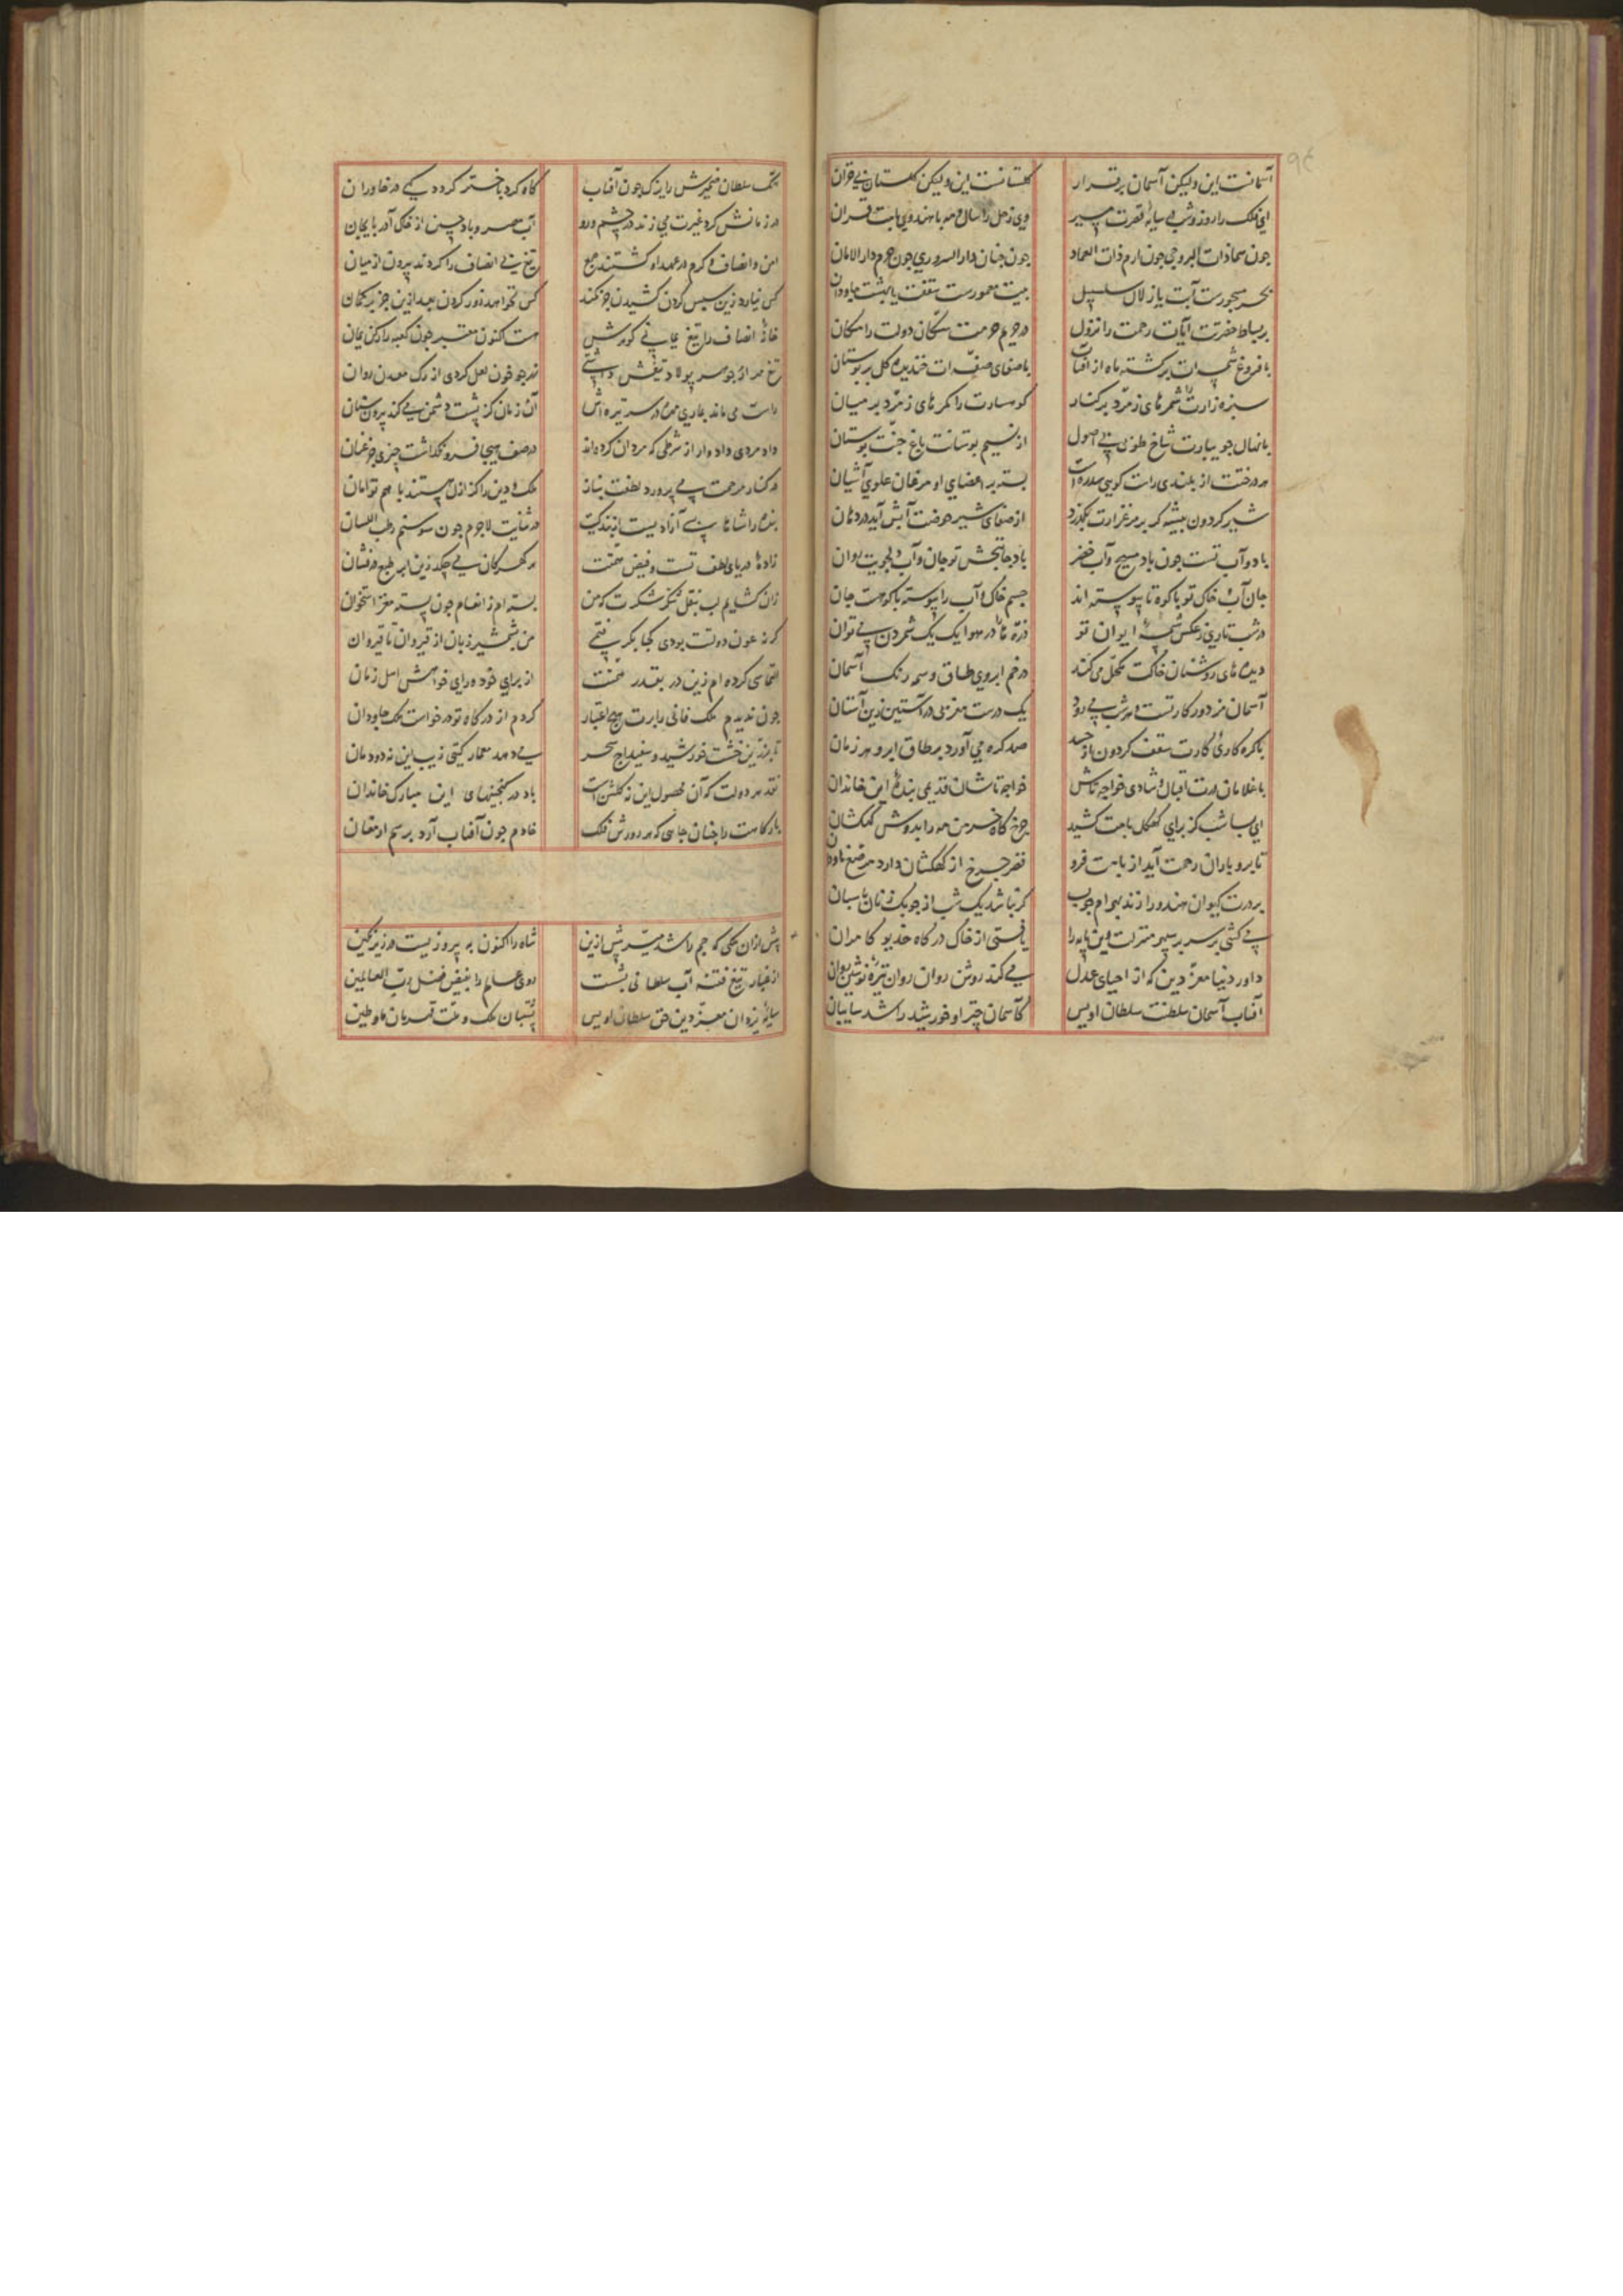 آسمانست این ولیکن آسمان برقرار گلستانست این ولیکن گلستان بی خزان
ای فلک را روز و شب بی سایه قصرت مسیر وی زحل را سال و مه با هندوی بامت قران
چون سما ذات البروجی چون ارم ذات العماد چون جنان دار السروری چون حرم دار الامان
بحر مسجورست آبت یا زلال سلسبیل بیت معمورست سقفت یا بهشت جاودان
بر بساط حضرتت آیات رحمت را نزول در حریم حرمتت سکان دولت را مکان
با فروغ شمسه ات برگشته ماه از آفتاب با صفای صفه ات خندیده گل بر بوستان
سبزه زارت را شمرهای زمرد بر کنار کوهسارت را کمرهای زمرد بر میان
با نهال جویبارت شاخ طوبی بی اصول از نسیم بوستانت باغ جنت بوستان
هر درخت از بلندی راست گویی سدره است بسته بر اعضای او مرغان علوی آشیان
شیر گردون بیشه گر بر مرغزارت بگذرد از صفای شیر حوضت آبش آید در دهان
باد و آب تست چون باد مسیح و آب خضر باد جانبخش تو جان و آب دلجویت روان
جان آب و خاک تو با کوه تا پیوسته اند جسم خاک و آب را پیوسته با کوهست جان
در شب تاری ز عکس شمسه ایوان تو ذره ها را در هوا یک یک شمردن می توان
دیده های روشنان خاکت مکحل می کند در خم ابروی طاق وسمه رنگ آسمان
آسمان مزدور کار تست و هر شب می رود یک درست مغربی در آستین زین آستان
با گره کاری کارت سقف گردون از حسد صد گره می آورد بر طاق ابرو هر زمان
با غلامان درت اقبال و شادی خواجه تاش خواجه تاشان قدیمی بنده این خاندان
ای بسا شب کز برای کهگل بامت کشید چرخ کاه خرمن مه را به دوش کهکشان
تا برو باران رحمت آید از بامت فرو قصر چرخ از کهکشان دارد مرصع ناودان
بر درت کیوان هندو را زند بهرام چوب گر نباشد یک شب از چوبک زنان پاسبان
می کشی بر سر سپهر منزلت وین پایه را یافتی از خاک درگاه خدیو کامران
داور دنیا معز دین که از احیای عدل می کند روشن روان روان تیره نوشین روان
آفتاب آسمان سلطنت سلطان اویس کآسمان چتر او خورشید را شد سایبان
یکت سلطان ضمیرش را یزک چون آفتاب گاه گرد باختر گردد گهی در خاوران
در زمانش گرد غیرت می زند در چشم و رو آب مصر و باد چین از خاک آذربایجان
امن و انصاف و کرم در عهد او گشتند جمع تیغ بی انصاف را کردند بیرون از میان
کس نیارد زین سپس گردن کشیدن جز کمند کس نخواهد زور کردن بعد ازین جز بر کمان
خانه انصاف را تیغ یمانی گوهرش هست اکنون معتبر چون کعبه را رکن یمان
تیغ مهر ار جوهر پولاد تیغش داشتی همچو خون لعل کردی از رگ معدن روان
راست می ماند بماری مهره در سر تیره اش آن زمان کز پشت دشمن می کند بیرون سنان
داد مردی داد وار از شرطی که مردان کرده اند در صف هیجا فرو نگذاشت چیزی جز عنان
در کنار مرحمت می پرورد لطفت بناز ملک و دین را کز ازل هستند با هم توأمان
بنده را شاها بسی آزادیست از بندگیت در ثنایت لاجرم چون سوسنم رطب اللسان
زاده دریای لطف تست و فیض همت هر گهر کان می چکد زین ابر طبع درفشان
زان گشایم لب بنقل شکر شکرت که من بسته ام ز انعام چون پسته مغز استخوان
گر نه عون دولتت بودی کجا بگرفتمی من بشمشیر زبان از قیروان تا قیروان
التماسی کرده ام زین در بقدر همت از برای خود ورای خواهش اهل زمان
چون ندیدم ملک فانی را برت هیچ اعتبار کردم از درگاه تو درخواست ملک جاودان
تا بزرین خشت خورشید و سفیداج سحر می دهد معمار گیتی زیب این نه دودمان
نقد هر دولت که آن محصول این نه گلشن است باد در گنجینهای این مبارک خاندان
بارگاهت را چنان جامی که هر روزش فلک خادم چون آفتاب آرد برسم ارمغان
پیش ازان ملکی که جم را شد میسر پیش ازین شاه را اکنون به پیروزیست در زیر نگین
از غبار تیغ فتنه آب سلطانی بشست روی عالم را بفیض فضل رب العالمین
سایه یزدان معز دین حق سلطان اویس پشتبان ملک و ملت قهرمان ماء و طین